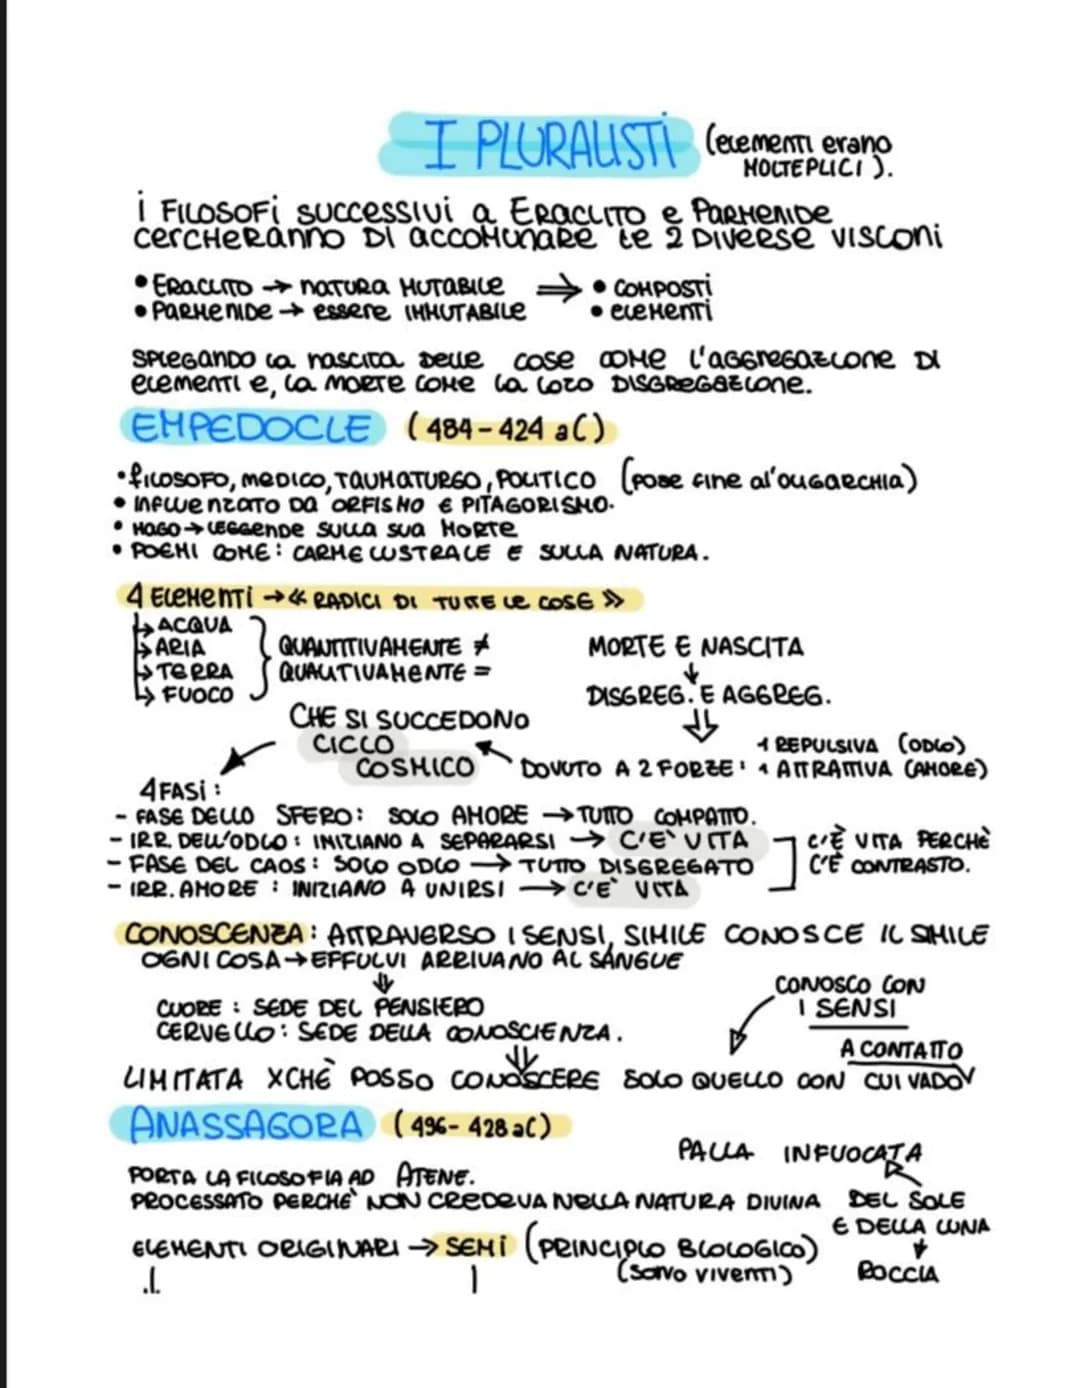 I PLURALISTI (elementi erano
MOLTEPLICI).
i FILOSOFI SUCCESSIVI a ERACLITO e PARMENIDE
cercheranno DI accomunare le 2 DIVERSE VISCONI
• ERACLITO → natura MUTABILE ⇒ • COMPOSTI
• PARMENIDE → essere IMMUTABILE • elementi
SPIEGANDO la nascita delle cose come l'aggregazione DI
elementi e, la MORTE come la loro DISGREGAZIONE.
EMPEDOCLE (484-424 aC)
• filosofo, medico, TAUMATURGO, POLITICO (pose fine al'OLIGARCHIA)
• INFLUENZATO DA ORFISMO E PITAGORISMO.
• MAGO → LEGGENDE SULLA SUA MORTE
• POEMI COME: CARME LUSTRALE E SULLA NATURA.
4 ELEMENTI → « RADICI DI TUTTE LE COSE »
↳ ACQUA
↳ ARIA } QUANTITIVAMENTE ≠ MORTE E NASCITA
↳ TERRA QUALITIVAMENTE = ↓
↳ FUOCO DISGREG. E AGGREG.
CHE SI SUCCEDONO ⇓
CICLO 1 REPULSIVA (ODIO)
COSMICO DOVUTO A 2 FORZE: 1 ATTRATTIVA (AMORE)
4 FASI:
- FASE DELLO SFERO: SOLO AMORE → TUTTO COMPATTO.
- IRR. DELL'ODIO: INIZIANO A SEPARARSI → C'E' VITA C'È VITA PERCHÈ
- FASE DEL CAOS: SOLO ODIO → TUTTO DISGREGATO C'È CONTRASTO.
- IRR. AMORE: INIZIANO A UNIRSI → C'E' VITA
CONOSCENZA: ATTRAVERSO I SENSI, SIMILE CONOSCE IL SIMILE
OGNI COSA → EFFLUVI ARRIVANO AL SANGUE
⇓ CONOSCO CON
CUORE: SEDE DEL PENSIERO I SENSI
CERVELLO: SEDE DELLA CONOSCIENZA.
⇓ A CONTATTO
LIMITATA XCHÉ POSSO CONOSCERE SOLO QUELLO CON CUI VADO
ANASSAGORA (496-428 aC)
PALLA INFUOCATA
PORTA LA FILOSOFIA AD ATENE.
PROCESSATO PERCHE' NON CREDEVA NELLA NATURA DIVINA DEL SOLE
E DELLA LUNA
ELEMENTI ORIGINARI → SEMI (PRINCIPIO BIOLOGICO) ↓
(SONO VIVENTI) ROCCIA